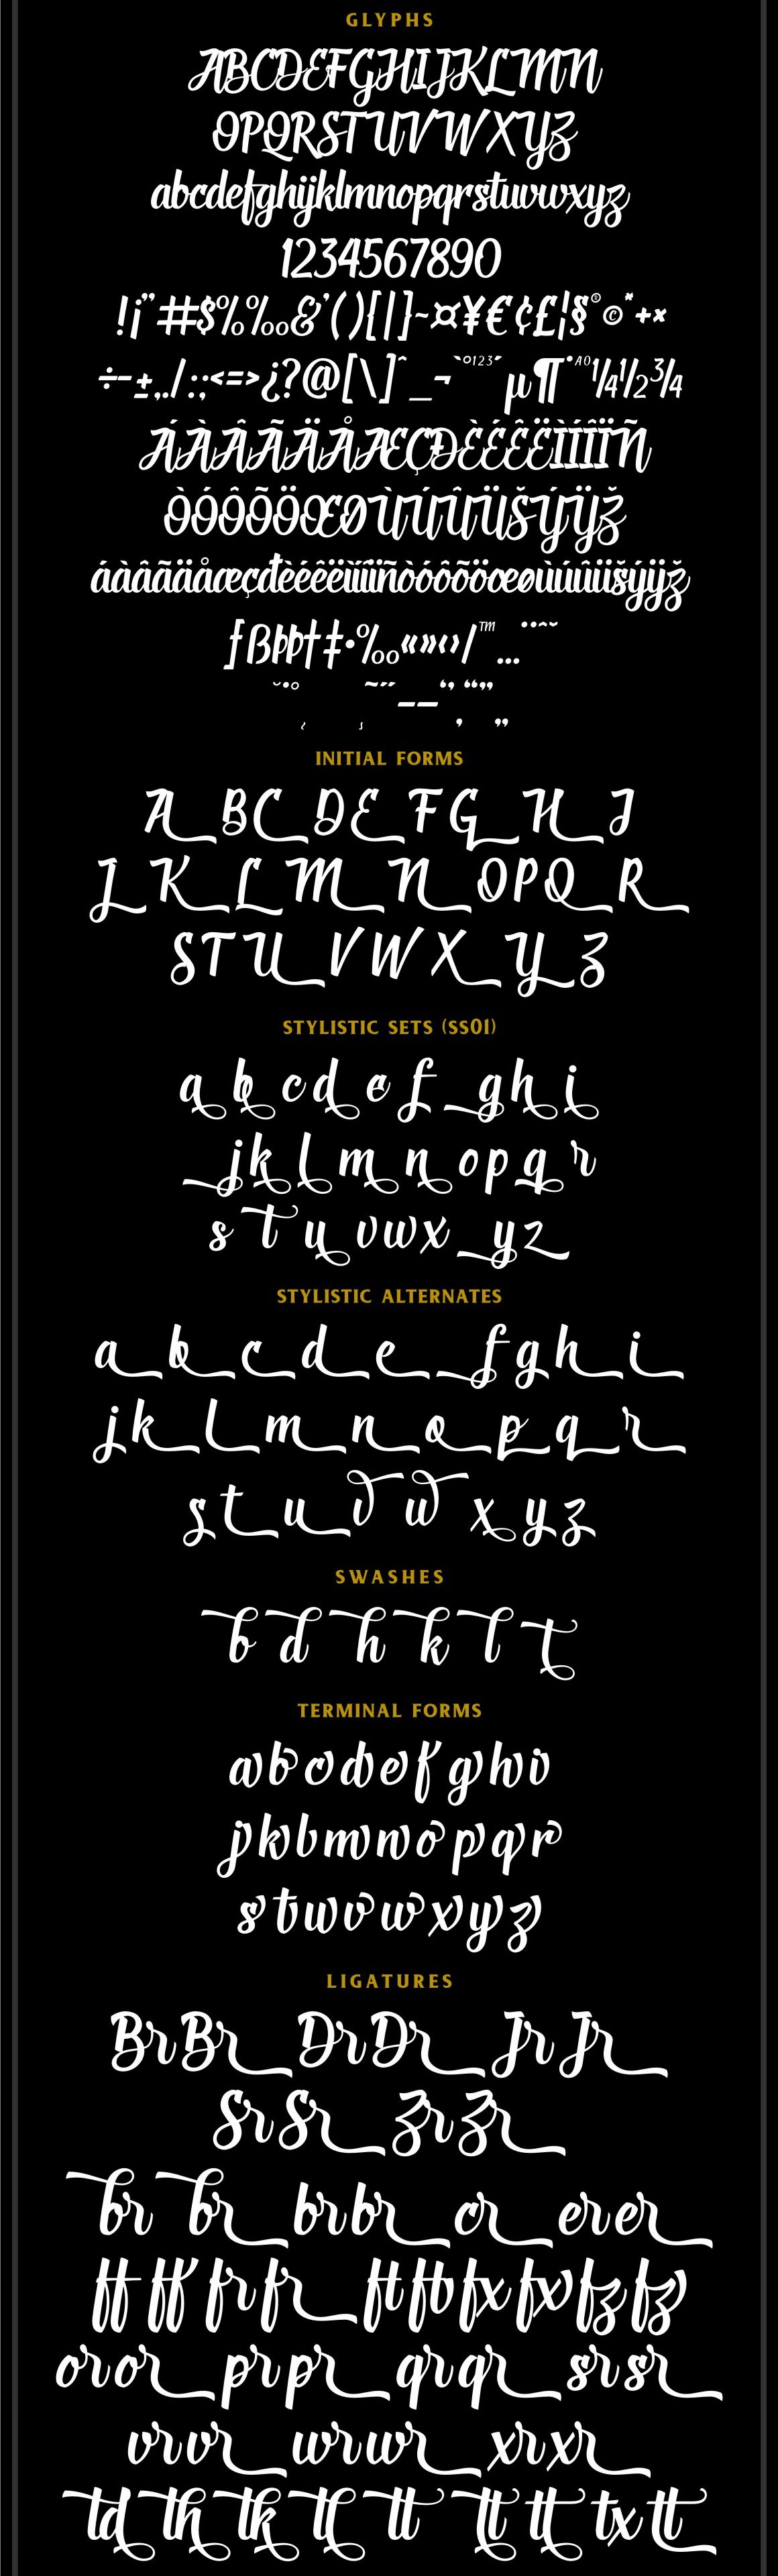 GLYPHS
ABCDEFGHIJKLMN
OPQRSTUVWXYZ
abcdefghijklmnopqrstuvwxyz
1234567890
!¡"#$%‰&'()[|]~¤¥€¢£¦§®©*+×
÷-±,./:;<=>¿?@[\]^_¬`°123´µ¶·AO¼½¾
ÁÀÂÃÄÅÆÇÐÈÉÊËÌÍÎÏÑ
ÒÓÔÕÖŒØÙÚÛÜŠÝŸŽ
áàâãäåæçđèéêëìíîïñòóôõöœøùúûüšýÿž
ƒßÞþ†‡•‰«»‹›/™…¨ˆ˜
˘˙˚˛¸˜˝–—‘’‚“”„
INITIAL FORMS
A B C D E F G H I
J K L M N O P Q R
S T U V W X Y Z
STYLISTIC SETS (SS01)
a b c d e f g h i
j k l m n o p q r
s t u v w x y z
STYLISTIC ALTERNATES
a b c d e f g h i
j k l m n o p q r
s t u v w x y z
SWASHES
b d h k l t
TERMINAL FORMS
a b c d e f g h i
j k l m n o p q r
s t u v w x y z
LIGATURES
Br Br Dr Dr Jr Jr
Sr Sr Zr Zr
br br br br cr er er
ff ff fr fr ft fb fx fx fz fz
or or pr pr qr qr sr sr
vr vr wr wr xr xr
td th tk tl tt tt tt tx tt